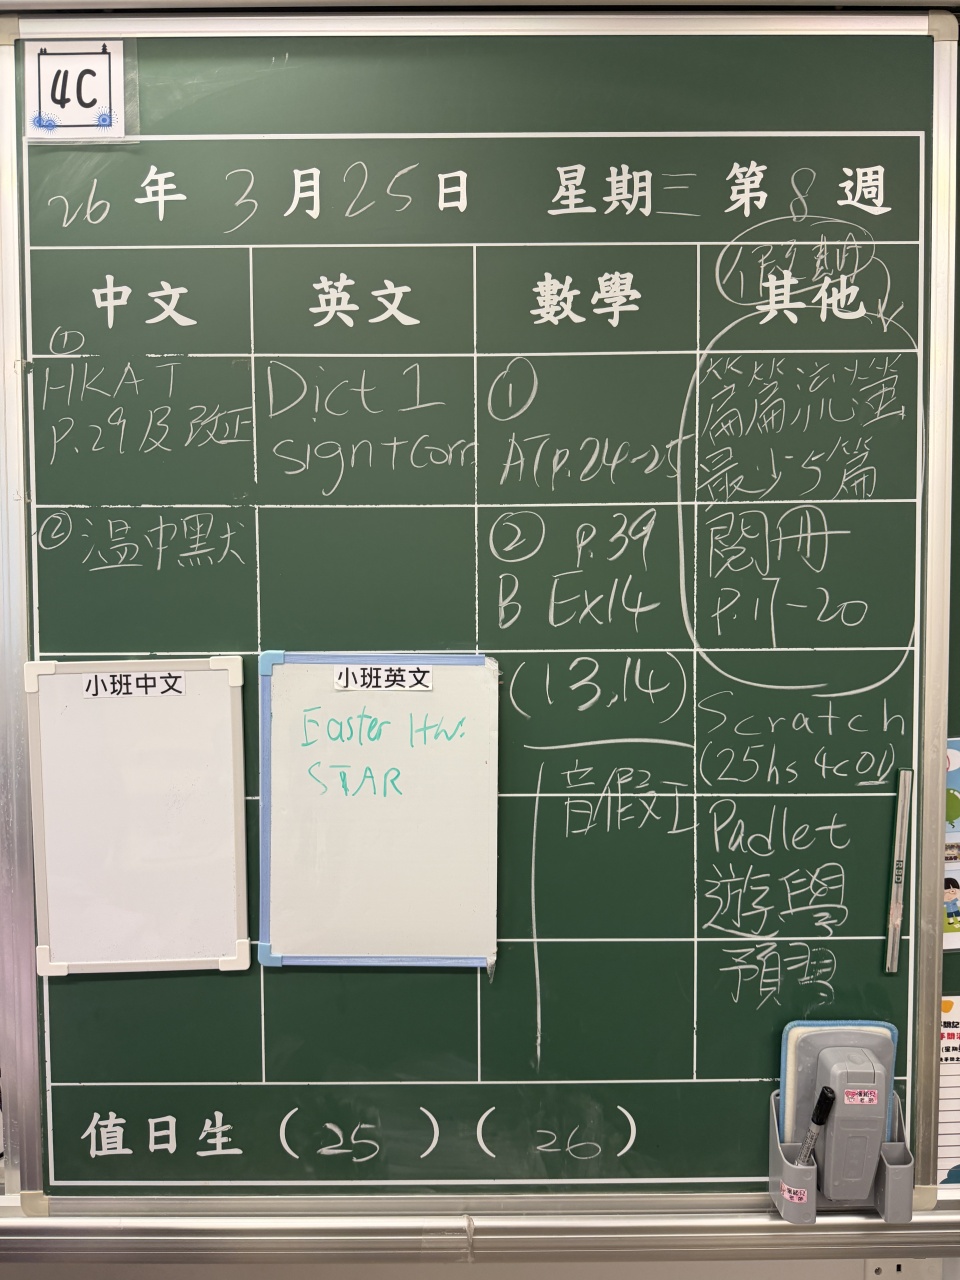 4C
26年3月25日 星期三 第8週
假期
中文 英文 數學 其他
①
HKAT
P.29及改正
②溫中默
Dict 1
sign+Corr
①
AT p.24-25
② p.39
B Ex14
(13,14)
音假工
篇篇流螢
最少5篇
閱冊
P.17-20
Scratch
(25hs 4c01)
Padlet
遊學
預習
小班中文
小班英文
Easter Hw:
STAR
值日生 (25) (26)